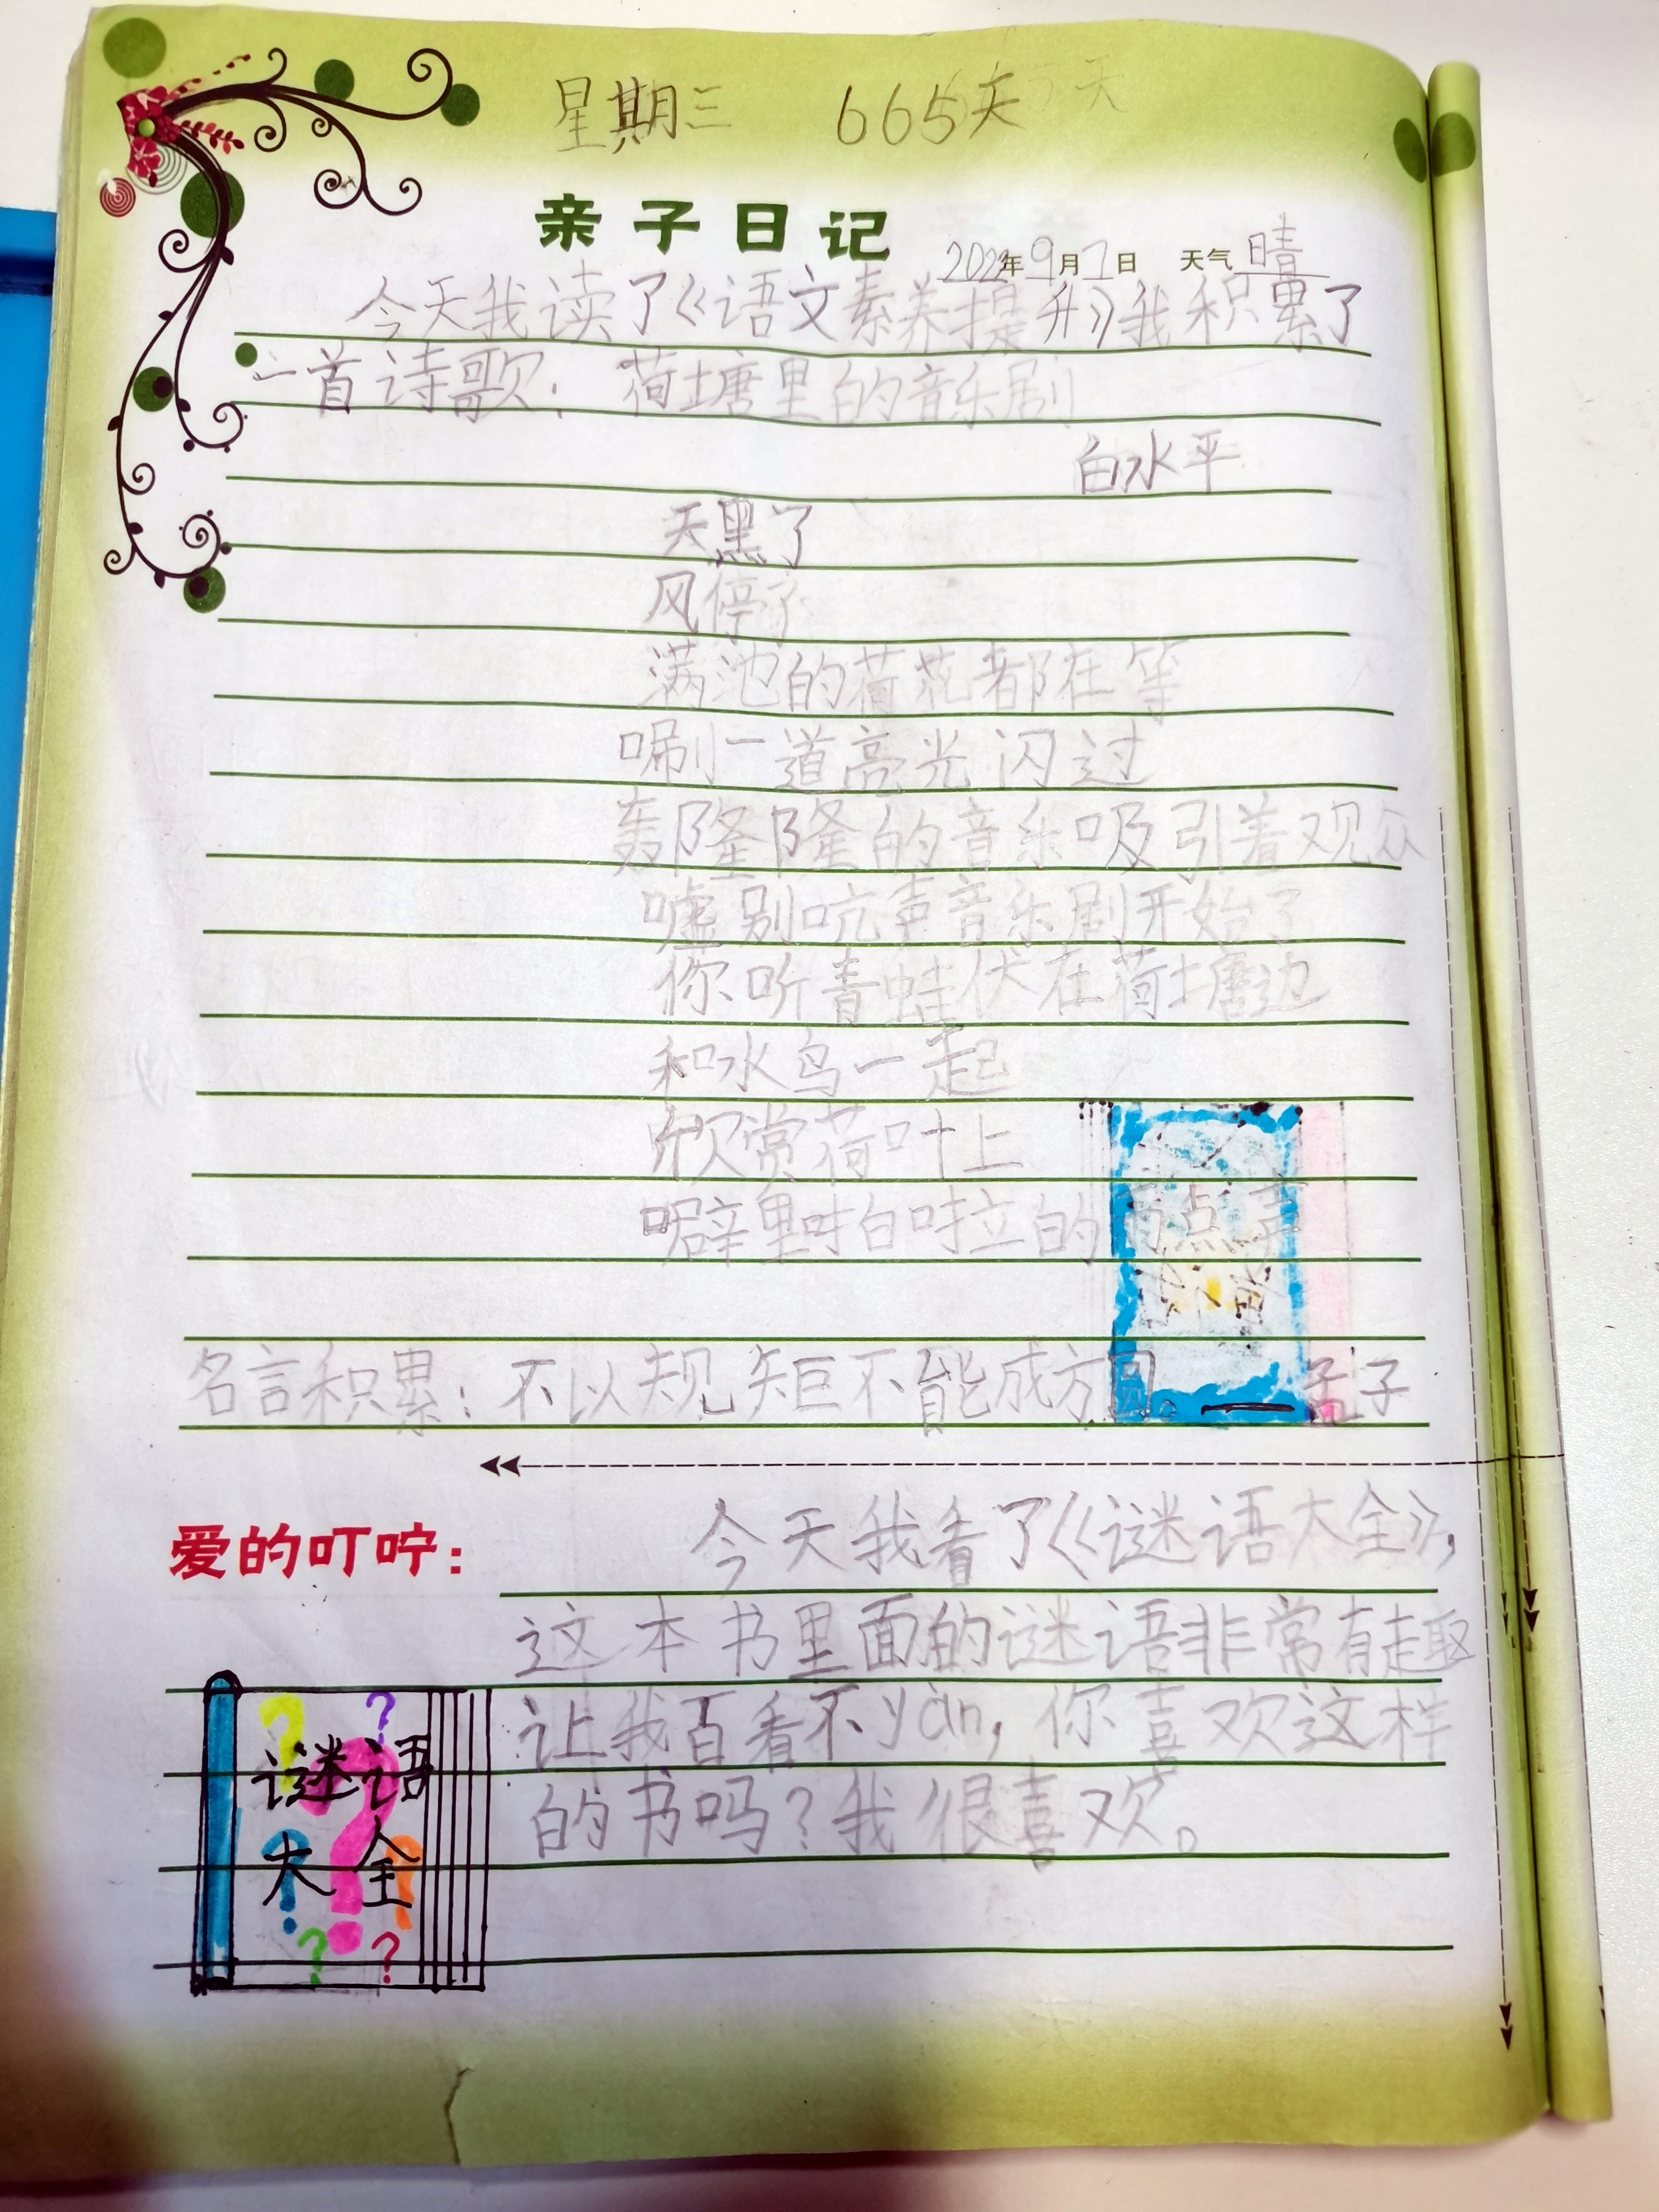 星期三 665天
亲子日记 2022年9月7日 天气 晴
今天我读了《语文素养提升》我积累了
一首诗歌：荷塘里的音乐剧
白水平
天黑了
风停了
满池的荷花都在等
唰一道亮光闪过
轰隆隆的音乐吸引着观众
嘘别吭声音乐剧开始了
你听青蛙伏在荷塘边
和水鸟一起
欣赏荷叶上
噼里啪啦的雨点声
名言积累：不以规矩不能成方圆。—孟子
爱的叮咛：
今天我看了《谜语大全》，
这本书里面的谜语非常有趣
让我百看不yàn，你喜欢这样
的书吗？我很喜欢。
? ?
谜语
大全
? ?